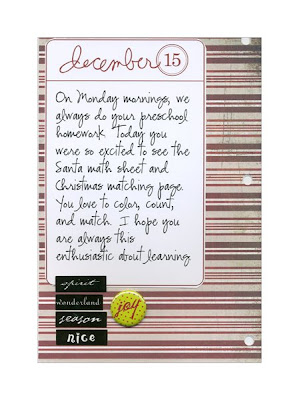 december 15
On Monday mornings, we
always do your preschool
homework. Today you
were so excited to see the
Santa math sheet and
Christmas matching page.
You love to color, count,
and match. I hope you
are always this
enthusiastic about learning
spirit
wonderland
season
nice
joy